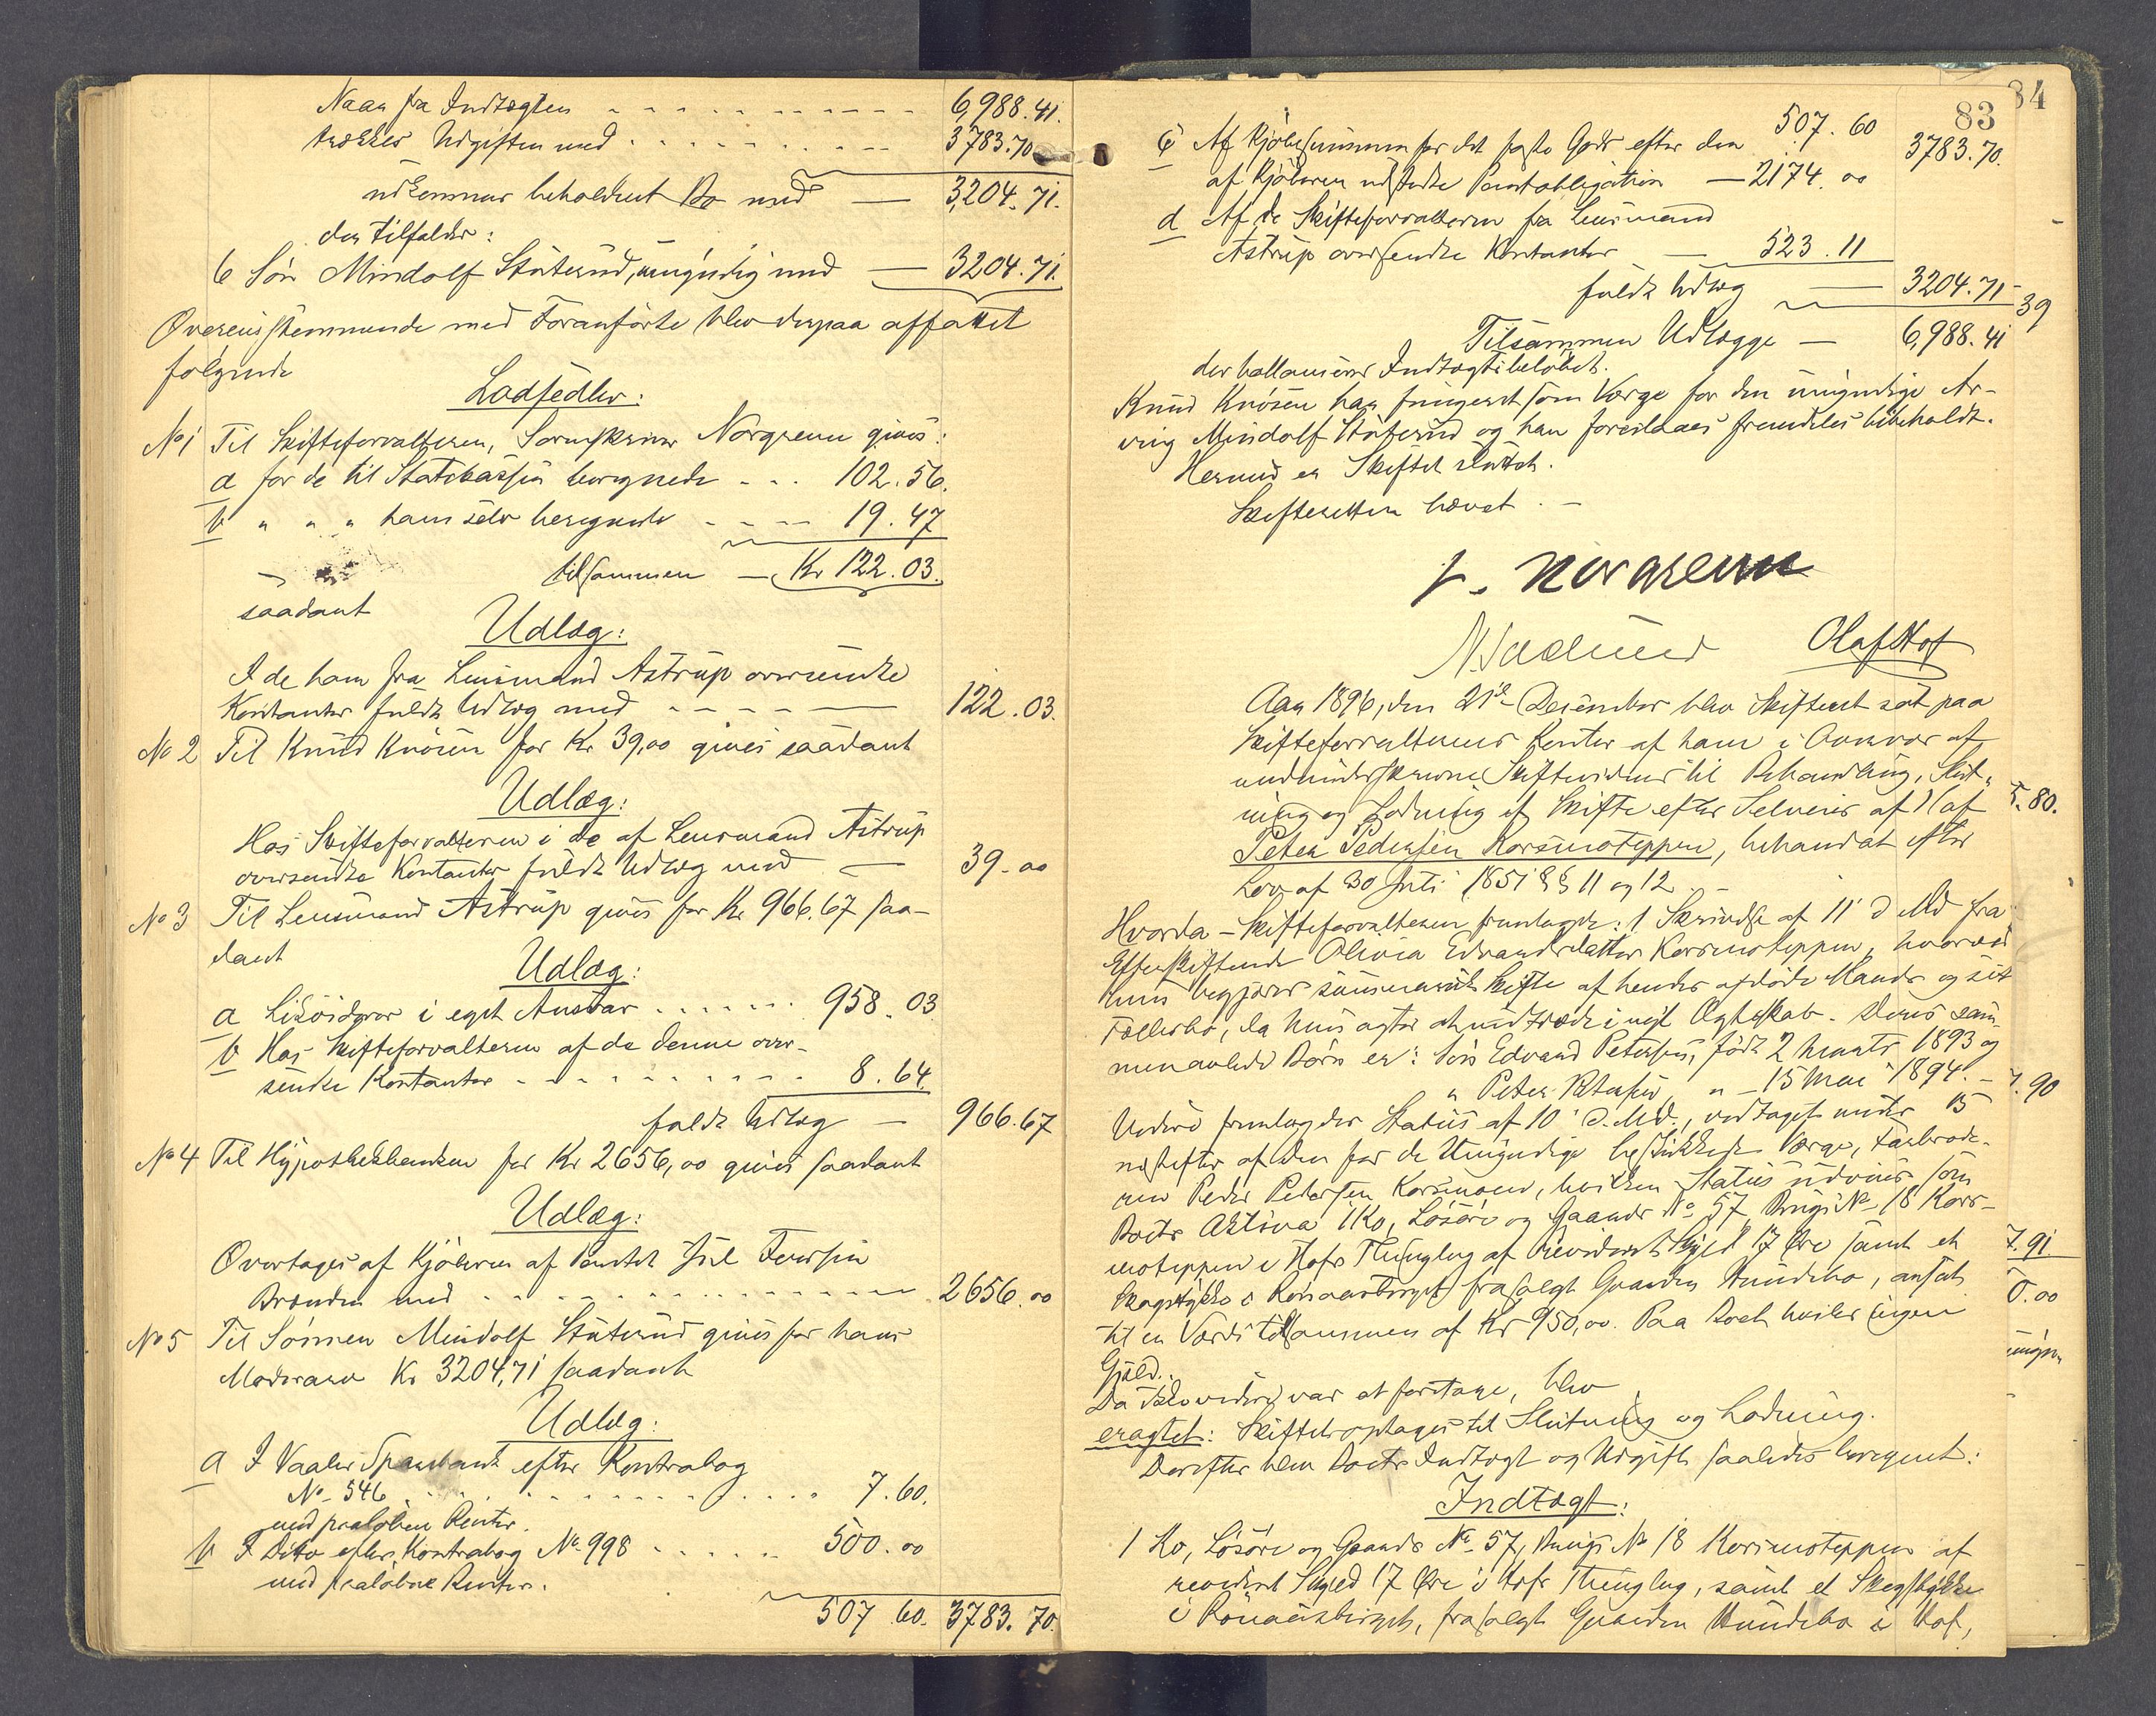 Naar fra Indtægten - - - - - - - - - - 6,988.41.
trækkes Udgiften med . . . . . . . . . 3783.70
udkommer beholdent Bo med — 3,204.71.
der tilfalder:
6 Søn Mindolf Støterud, umyndig med — 3204.71.
Overensstemmende med Foranførte blev derpaa affattet
følgende
Lodsedler:
No 1 Til Skifteforvalteren, Sorenskriver Norgrenn gives:
a for de til Statskassen beregnede - - . 102.56.
b " " " ham selv beregnede - - - - 19.47
tilsammen — Kr 122.03.
saadant
Udlæg:
I de ham fra Lensmand Astrup oversendte
Kontanter fuldt Udlæg med - - - - — 122.03.
No 2 Til Knud Knøsen for Kr 39,00 gives saadant
Udlæg:
Hos Skifteforvalteren i de af Lensmand Astrup
oversendte Kontanter fuldt Udlæg med — 39.00
No 3 Til Lensmand Astrup gives for Kr 966.67 saa-
dant
Udlæg:
a i eget Ansvar . . . . . . 958.03
b Hos Skifteforvalteren af de denne over-
sendte Kontanter - - - - - - - - - - 8.64
fuldt Udlæg — 966.67
No 4 Til Hypothekbanken for Kr 2656,00 gives saadant
Udlæg:
Overtages af Kjøberen af Pantet Juel
Brænden med - - - - - - - - - - - - 2656.00
No 5 Til Sønnen Mindolf Støterud gives for hans
Mødrearv Kr 3204,71 saadant
Udlæg:
a I Vaaler Sparebank efter Kontrabog
No 546 . . . . . . . . . . . . . 7.60.
med paaløbne Renter.
b I Dito efter Kontrabog No 998 . . . . . . 500.00
med paaløbne Renter.
507.60. 3783.70.
83
84
507.60 3783.70.
c Af Kjøbesummen for det faste Gods efter den
af Kjøberen udstedte Pantobligation — 2174.00
d Af de Skifteforvalteren fra Lensmand
Astrup oversendte Kontanter — 523.11
fuldt Udlæg — 3204.71-
39
Tilsammen Udlægge — 6,988.41
der ballanserer Indtægtsbeløbet.
Knud Knøsen har fungeret som Værge for den umyndige Ar-
ving Mindolf Støterud og han foreslaaes fremdeles bibeholdt.
Hermed er Skiftet sluttet.
Skifteretten hævet. —
Norgrenn
Olaf Hof
Aar 1896, den 21de Desember blev Skifteret sat paa
Skifteforvalterens Kontor af ham i Overvær af
medunderskrevne Skiftevidner til Behandling, Slut-
ning og Lodning af Skifte efter Selveier af Hof
5.80.
Peter Pedersen Korsmoteppen, behandlet efter
Lov af 30 Juli 1851 §§ 11 og 12. —
Hvorda — Skifteforvalteren fremlagde: 1 Skrivelse af 11 d Md fra
Efterskiftende Olivia Edvardsdatter Korsmoteppen, hvorved
hun begjærer summarisk Skifte af hendes afdøde Mands og sit
Fællesbo, da hun agter at indtræde i nyt Ægteskab. Deres sam-
menavlede Børn er: Søn Edvard Petersen, født 2 Marts 1893 og
" Peter Petersen, " 15 Mai 1894. —
7.90
Videre fremlagdes Status af 10 d. Md., vedtaget under 15
næstefter af den for de Umyndige beskikkede Værge, Farbrode-
ren Peder Pedersen Korsmoen, hvilken Status udviser som
Boets Aktiva 1 Ko, Løsøre og Gaards No 57 Brugs No 18 Kors-
moteppen i Hofs Thinglag af revideret Skyld 17 Øre samt et
7.91
Skogstykke i Rønaasberget frasolgt Gaarden Hundebo, ansat
0.00
til en Værdi tilsammen af Kr 950,00. Paa Boet hviler ingen
Gjæld.
Da Intet videre var at foretage, blev
eragtet: Skiftet optages til Slutning og Lodning.
Derefter blev Boets Indtægt og Udgift saaledes beregnet:
Indtægt:
1 Ko, Løsøre og Gaards No 57, Brugs No 18 Korsmoteppen af
revideret Skyld 17 Øre i Hofs Thinglag, samt et Skogstykke
i Rønaasberget, frasolgt Gaarden Hundebo i Hof,